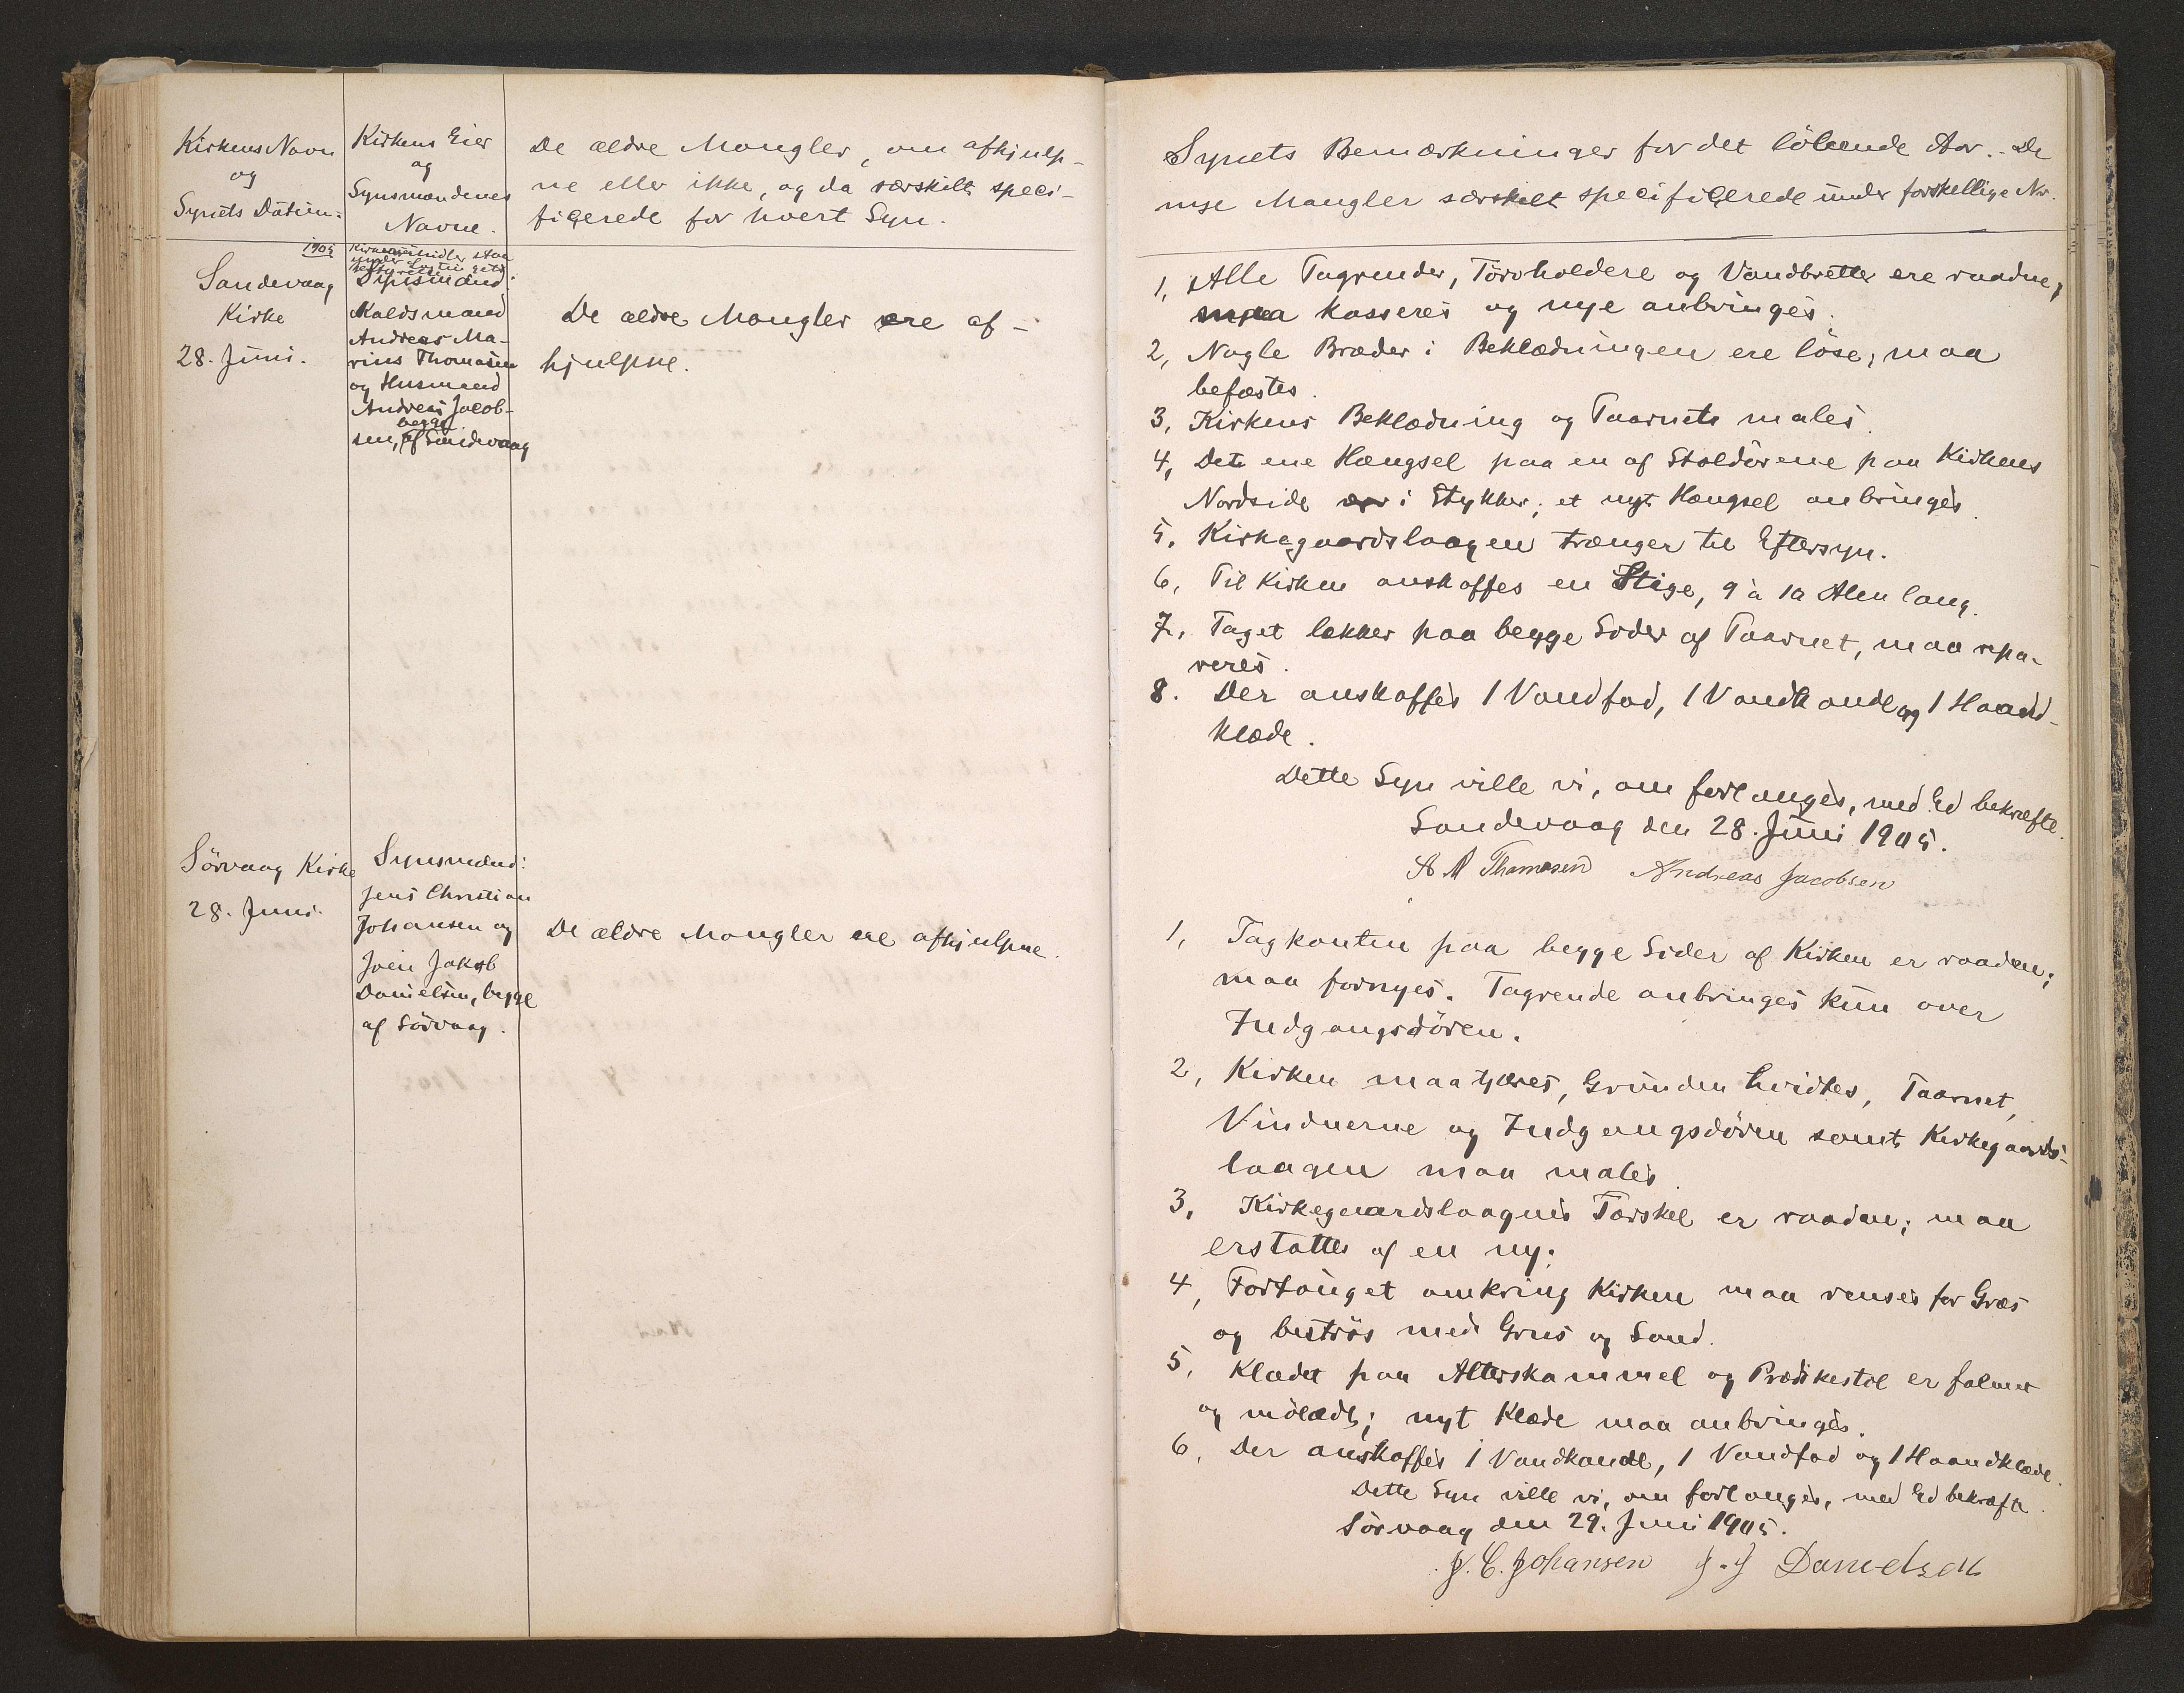 Kirkens Navn
og
Synets Datum:
Kirkens Eier
og
Synsmændenes
Navne.
De ældre Mangler, om afhjulp-
ne eller ikke, og da særskilt speci-
ficerede for hvert Syn.
1905
Sandevaag
Kirke
28. Juni.
Synsmænd:
Kaldsmand
Andreas Ma-
rius Thomasen
og Husmand
Andreas Jacob-
begge
sen, af Sandevaag
De ældre Mangler ere af-
hjulpne.
Sörvaag Kirke
28. Juni.
Synsmænd:
Jens Christian
Johansen og
Joen Jakob
Danielsen, begge
af Sörvaag.
De ældre Mangler ere afhjulpne.
Synets Bemærkninger for det löbende Aar. - De
nye Mangler særskilt specificerede under forskellige No.
1, Alle Tagrender, Törvholdere og Vandbretter ere raadne,
maa kasseres og nye anbringes.
2, Nogle Bræder i Beklædningen ere löse, maa
befæstes.
3, Kirkens Beklædning og Taarnets males.
4, Det ene Hængsel paa en af Stoldörene paa Kirkens
Nordside er i Stykker; et nyt Hængsel anbringes.
5. Kirkegaardslaagen trænger til Eftersyn.
6, Til Kirken anskaffes en Stige, 9 à 10 Alen lang.
7, Taget lækker paa begge Sider af Taarnet, maa repa-
reres.
8. Der anskaffes 1 Vandfad, 1 Vandkande og 1 Haand-
klæde.
Dette Syn ville vi, om forlanges, med Ed bekræfte.
Sandevaag den 28. Juni 1905.
A M Thomasen Andreas Jacobsen
1, Tagkanten paa begge Sider af Kirken er raaden;
maa fornyes. Tagrende anbringes kun over
Indgangsdören.
2, Kirken maa tjæres, Grunden hvidtes, Taarnet,
Vinduerne og Indgangsdören samt Kirkegaards-
laagen maa males.
3, Kirkegaardslaagens Tærskel er raaden; maa
erstattes af en ny.
4, Fortouget omkring Kirken maa renses for Græs
og beströs med Grus og Sand.
5, Klædet paa Alterskammel og Prædikestol er falmet
og mölædt; nyt Klæde maa anbringes.
6, Der anskaffes 1 Vandkande, 1 Vandfad og 1 Haandklæde.
Dette Syn ville vi, om forlanges, med Ed bekræfte.
Sörvaag den 29. Juni 1905.
J. C. Johansen J. J Danielsen